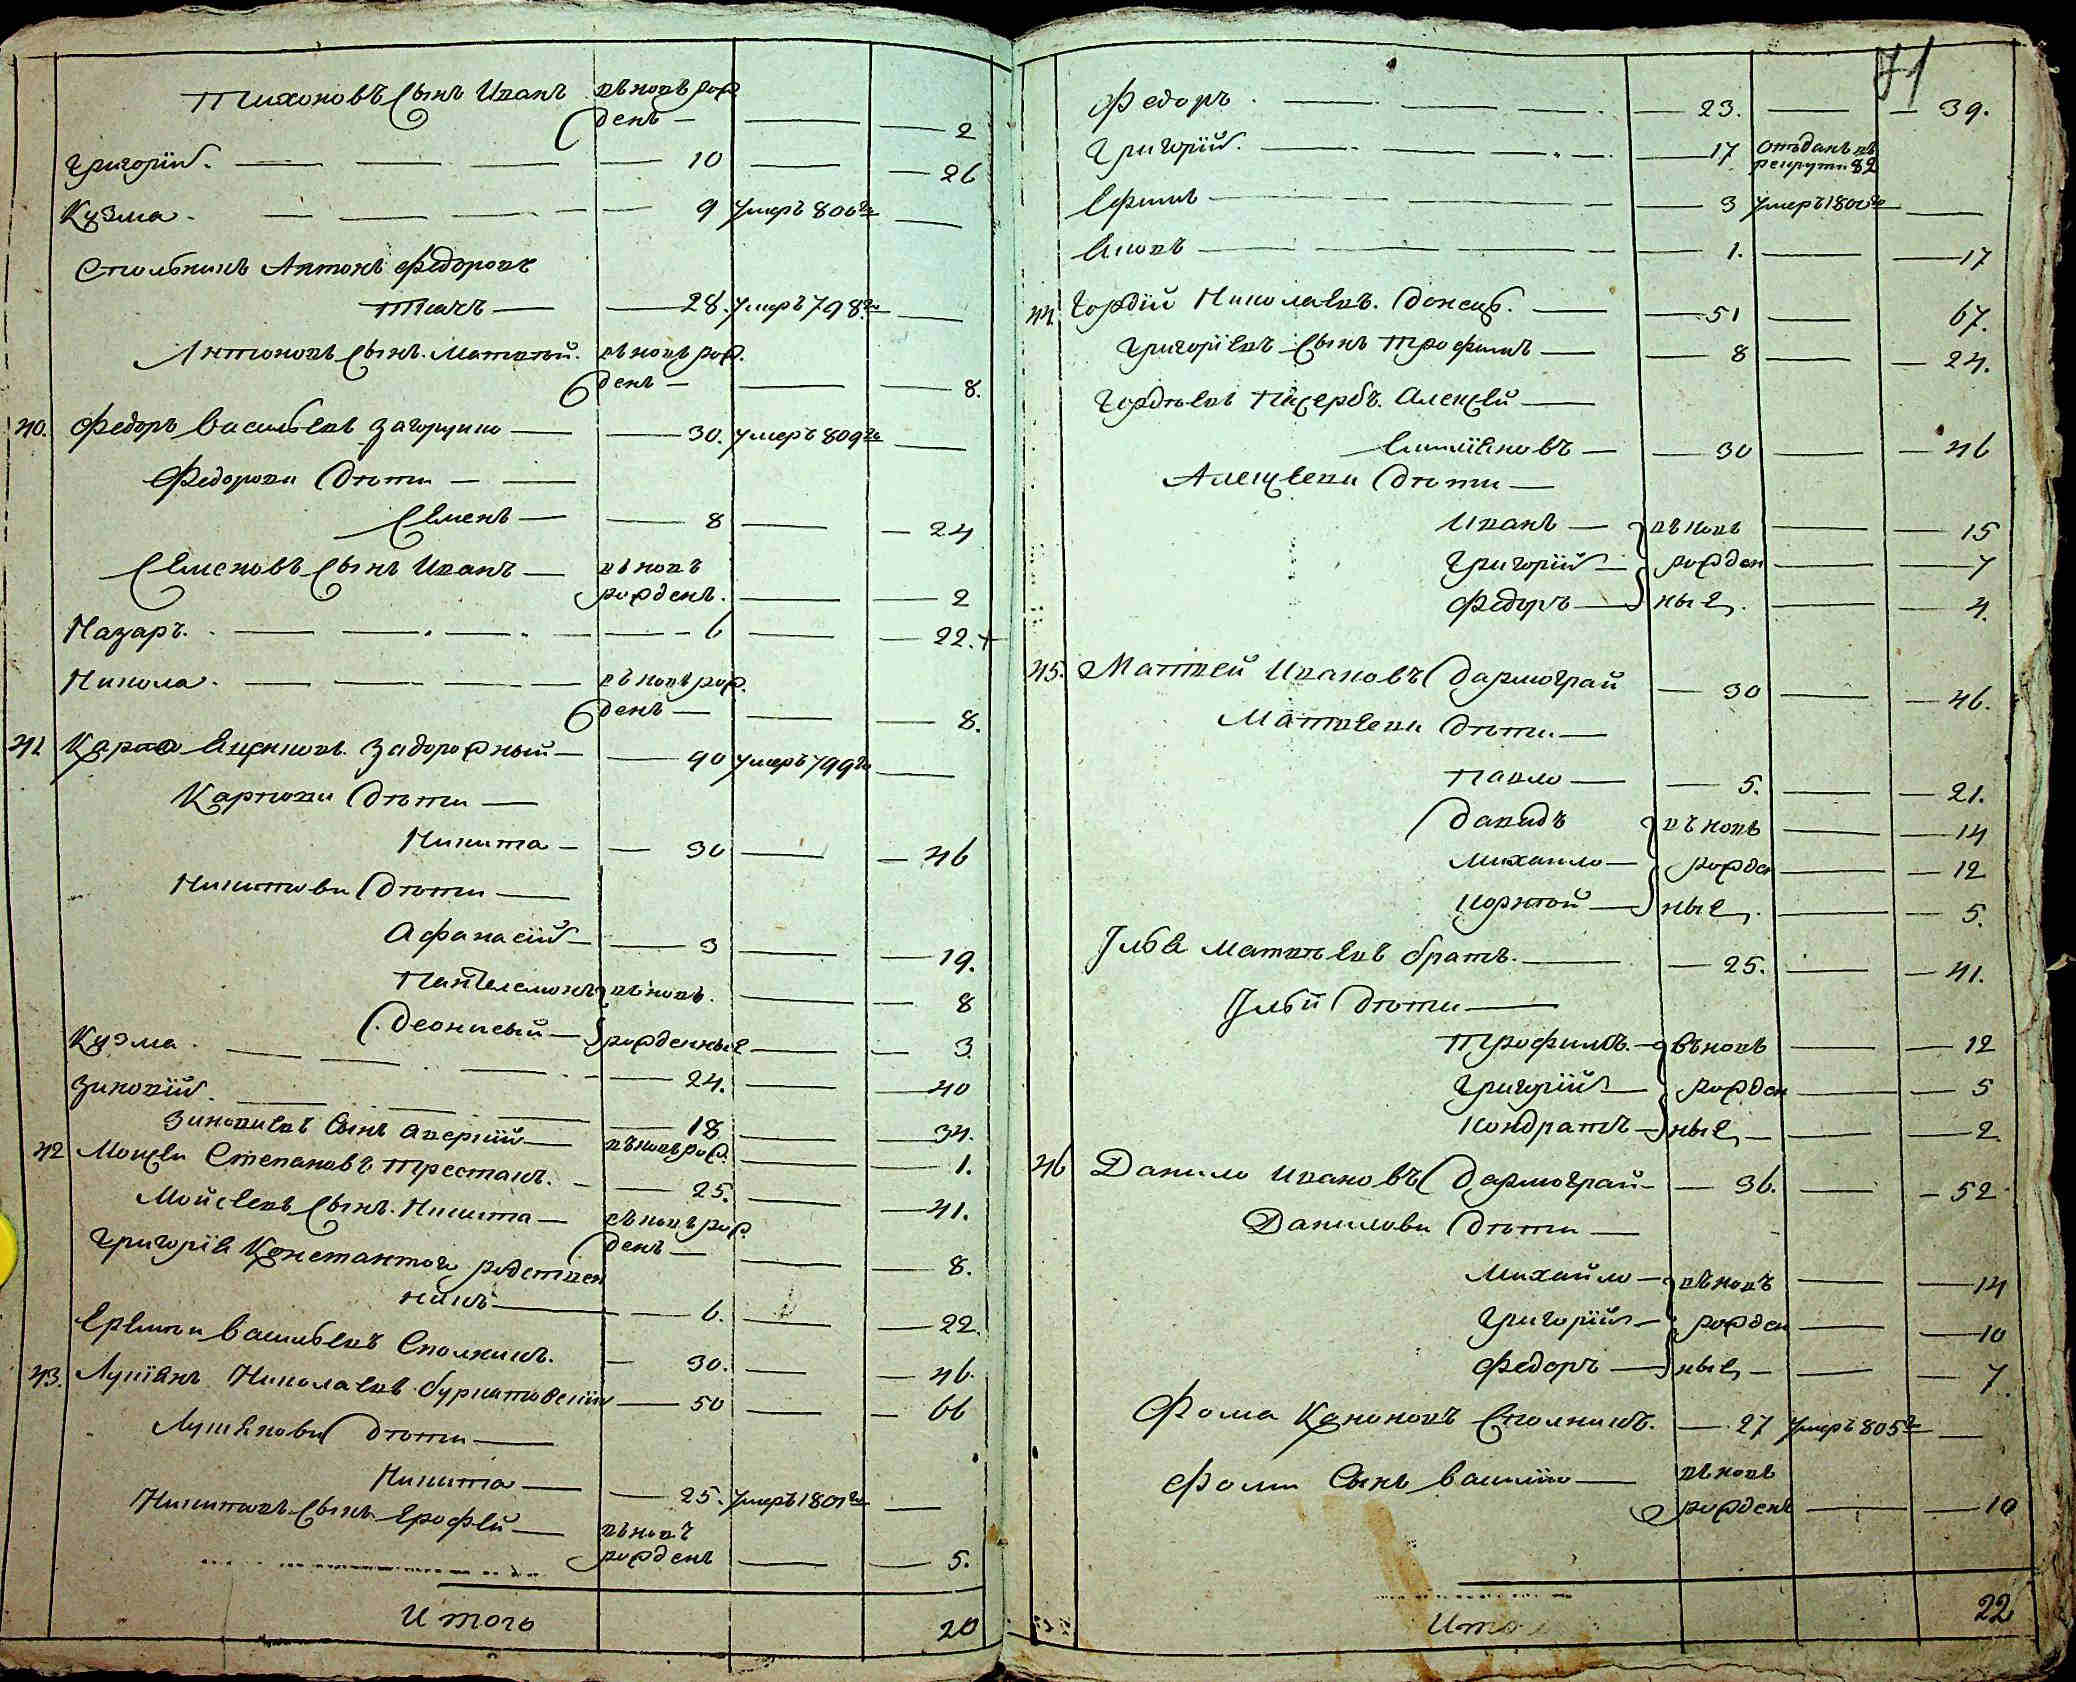 Тихоновъ сынъ Иванъ въновь рож
денъ — — 2
Григорій. — 10 — 26
Кузма. — 9 умеръ 806го —
Стольникъ Антонъ Федоровъ
Ткачъ — 28. умеръ 798го —
Антоновъ сынъ Матвей. вьновь рож.
денъ — — 8.
40. Федоръ Васильевъ Загорулко — 30. умеръ 809го —
Федоровы дѣти —
Семенъ — 8 — 24
Семеновъ сынъ Иванъ — вьновь
рожденъ. — 2
Назаръ. — 6 — 22.+
Никола. — вьновь рож.
денъ — — 8.
41 Карпо Яценковъ Задорожный — 90 умеръ 799го —
Карповы дѣти —
Никита — 30 — 46
Никитовы дѣти —
Афанасій — 3 — 19.
Пантелемонъ вьновь. — 8
Деонисый — рожденные — 3
Кузма. — 24. — 40
Зиновій. — 18 — 34.
Зиновиевъ сынъ Аверкій — вьновь рож. — 1.
42 Моисей Степановъ Трестанъ. — 25. — 41.
Мойсеевъ сынъ Никита — вьновь рож
денъ — — 8.
Григорія родствен
никъ — 6. — 22.
Васильевъ — 30. — 46.
43. Лукіянъ Николаевъ — 50 — 66
Лукіяновы дѣти —
Никита — 25. умеръ 1801го —
Никитовъ сынъ Ерофей — вьновь
рожденъ — 5.
Итого 20
71
Федоръ — 23. — 39.
Григорій. — 17 отъданъ въ
рекруты 82
Ефимъ — 3 умеръ 1801го —
Яковъ — 1. — 17
44 Гордій Николаевъ. Донецъ. — 51 — 67.
Григоріевъ сынъ Трофимъ — 8 — 24.
Гордѣевъ Алексей —
Емиліяновъ — 30 — 46
Алексеевы дѣти —
Иванъ — вьновь — 15
Григорій — рожден — 7
Федоръ — ные. — 4.
45. Матвей Ивановъ Дармограй — 30 — 46.
Матвеевы дѣти. —
Павло — 5. — 21.
Давидъ вьновь — 14
Михаило — рожден — 12
Корнѣй — ные. — 5.
Илья Матвѣевъ братъ. — 25. — 41.
Ильи дѣти —
Трофимъ. — вьновь — 12
Григорій — рожден — 5
Кондратъ — ные — 2
46 Данило Ивановъ Дармограй — 36. — 52
Даниловы дѣти —
Михайло — вьновь — 14
Григорій — рожден — 10
Федоръ — ные — 7.
Фома Кононовъ — 27 умеръ 805го —
Фомы сынъ Василій — вьновь
рожденъ — 10
Итого 22